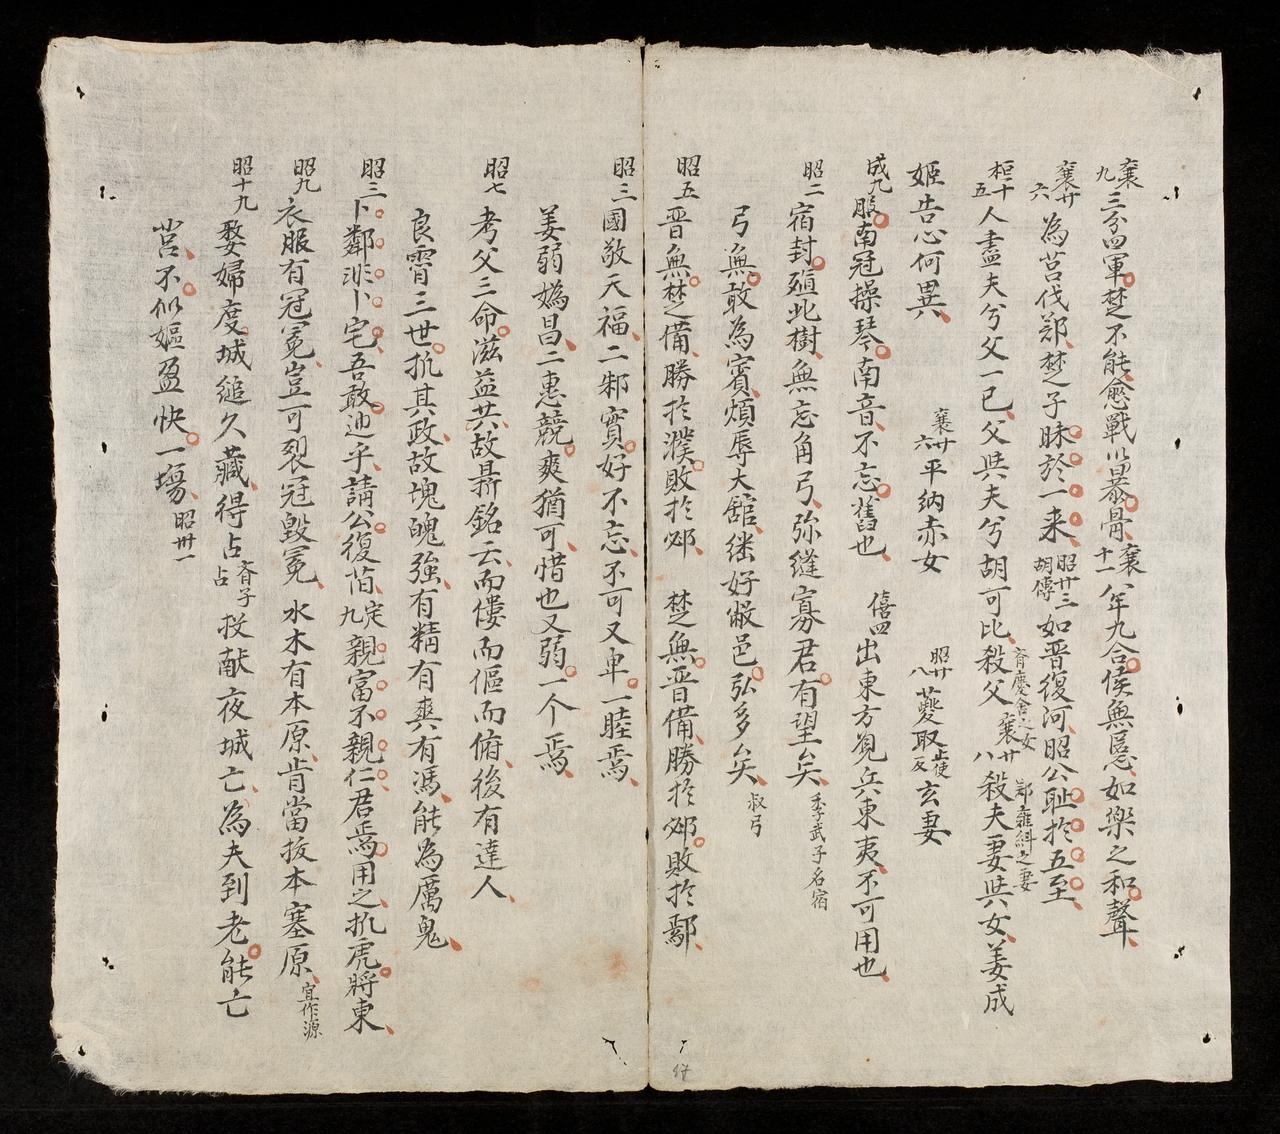 襄九三分四軍楚不能愈戰以暴骨襄十一八年九合侯無慝如樂之和聲
襄廿六為莒伐郑楚子昧於一来昭廿三胡傳如晉復河昭公耻於五至
桓十五人盡夫兮父一已父與夫兮胡可比殺父齊慶舍之女襄廿八殺夫妻與女姜成郑雍糾之妻
姬告心何異襄廿六平納赤女昭廿八夔取玄妻
成九服南冠操琴南音不忘舊也僖四出東方覌兵東夷不可用也
昭二宿封殖此樹無忘角弓弥縫寡君有望矣季武子名宿
弓無敢為賓煩辱大舘継好敝邑弘多矣叔弓
昭五晉無楚備勝於濮敗於邲楚無晉備勝於邲敗於鄢
昭三國敬天福二邾實好不忘不可又卑一睦焉
姜弱媯昌二惠競爽猶可惜也又弱一个焉
昭七考父三命滋益共故鼎銘云而僂而傴而俯後有達人
良霄三世執其政故塊魄強有精有爽有馮能為厲鬼
昭三卜鄰非卜宅吾敢迆乎請公復苢定九親富不親仁君焉用之執虎將東
昭九衣服有冠冕豈可裂冠毀冕水木有本原肯當抜本塞原宜作源
昭十九嫠婦度城縋久藏得占齊子占投献夜城亡為夫到老能亡
莒不似嫗盈快一塲昭卅一